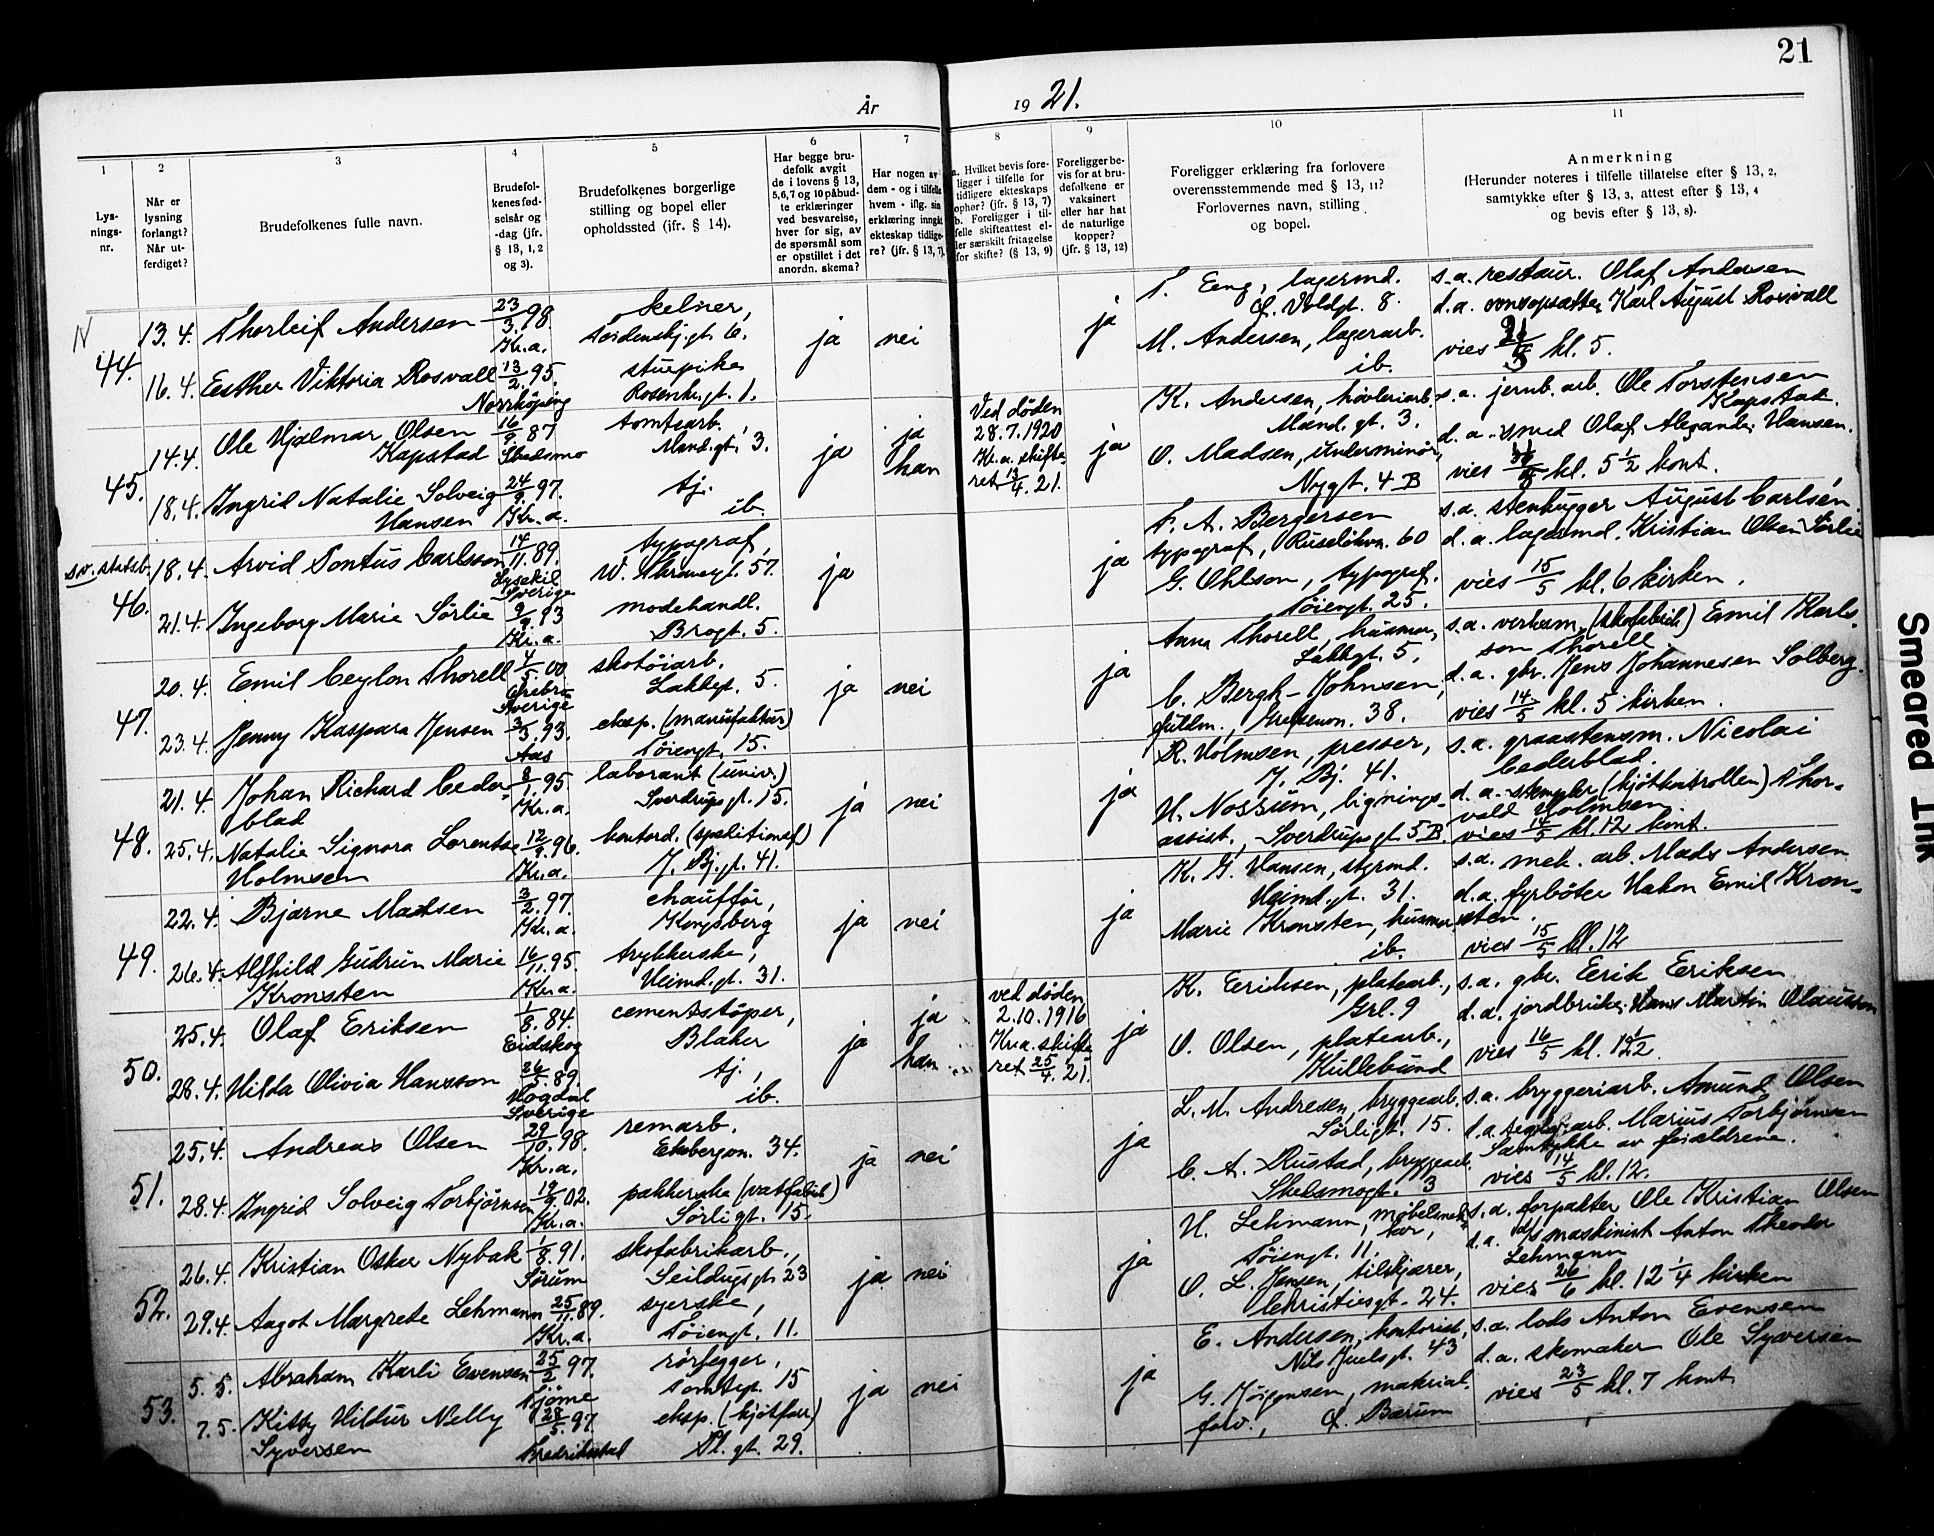 21
År 19 21.
1
Lys-
nings-
nr.
2
Når er
lysning
forlangt?
Når ut-
ferdiget?
3
Brudefolkenes fulle navn.
4
Brudefol-
kenes fød-
selsår og
-dag (jfr.
§ 13, 1, 2
og 3).
5
Brudefolkenes borgerlige
stilling og bopel eller
opholdssted (jfr. § 14).
6
Har begge bru-
defolk avgit
de i lovens § 13,
5,6,7 og 10 påbud-
te erklæringer
ved besvarelse,
hver for sig, av
de spørsmål som
er opstillet i det
anordn. skema?
7
Har nogen av
dem - og i tilfelle
hvem - iflg. sin
erklæring inngått
ekteskap tidlige-
re? (jfr. § 13, 7).
8
a. Hvilket bevis fore-
ligger i tilfelle for
tidligere ekteskaps
ophør? (jfr. § 13, 7)
b. Foreligger i til-
felle skifteattest el-
ler særskilt fritagelse
for skifte? (§ 13, 9)
9
Foreligger be-
vis for at bru-
defolkene er
vaksinert
eller har hat
de naturlige
kopper?
(jfr. § 13, 12)
10
Foreligger erklæring fra forlovere
overensstemmende med § 13, 11?
Forlovernes navn, stilling
og bopel.
11
Anmerkning
(Herunder noteres i tilfelle tillatelse efter § 13, 2,
samtykke efter § 13, 3, attest efter § 13, 4
og bevis efter § 13, 8).
44.
13.4. Thorleif Andersen 23/3.98. Kr.a. kelner, Tordenskj.gt. 6. ja nei
16.4. Esther Viktoria Rosvall 13/2.95. Norrköping stuepike Rosenkr.gt. 1.
ja
T. Eeng, lagermd.
Ø. Voldgt. 8.
M. Andersen, lagerarb.
ib.
s.a. restaur. Olaf Andersen
d.a. Karl August Rosvall
vies kl. 5.
45.
14.4. Ole Hjalmar Olsen Kapstad 16/9.87 Skedsmo tomtearb. Mand.gt. 3. ja ja han
18.4. Ingrid Natalie Solveig Hansen 24/9.97. Kr.a. tj. ib.
Ved døden
28.7.1920
Kr.a. skifte
ret 13/4.21.
ja
K. Andersen, høvleriarb.
Mand.gt. 3.
O. Madsen, underminör,
Nygt. 4 B
s.a. jernb.arb. Ole Torstensen
Kapstad.
d.a. smed Olaf Alexander Hansen.
vies kl. 5 1/2 kont.
sv. statsb.
46.
18.4. Arvid Pontus Carlsson 14/11.89. Lysekil Sverige typograf, W. Thranesgt. 57. ja
21.4. Ingeborg Marie Sörlie 9/9.93 Kr.a. modehandl. Brogt. 5.
ja
T. A. Bergersen
typograf, Ruselökvn. 60
G. Ohlson, typograf.
Töiengt. 25.
s.a. stenhugger August Carlsén
d.a. lagermd. Kristian Olsen Sörlie
vies 15/5 kl. 6 kirken.
47.
20.4. Emil Ceylon Thorell 4/5.00 Örebro Sverige skotöiarb. Lakkegt. 5. ja nei
23.4. Jenny Kaspara Jensen 3/3.93. Aas eksp. (manufaktur) Töiengt. 15.
ja
Anna Thorell, husmor,
Lakkegt. 5.
C. Bergh-Johnsen,
fullm., Grefsenvn. 38.
s.a. verksm. (skofabrik) Emil Karls-
son Thorell
d.a. gbr. Jens Johannesen Solberg.
vies 14/5 kl. 5 kirken.
48.
21.4. Johan Richard Ceder-
blad 8/1.95 Kr.a. laborant (univ.) Sverdrupsgt. 15. ja nei
25.4. Natalie Signora Lorentse
Holmsen 12/9.96. Kr.a. kontord. (speditionsf) J. Bj.gt. 41.
ja
R. Holmsen, presser,
J. Bj. 41.
H. Nossum, lignings-
assist., Sverdrupsgt. 5 B.
s.a. graastensm. Nicolai
Cederblad.
d.a. stempler (kjötkontrollen) Thor-
vald Holmsen
vies 14/5 kl. 12 kont.
49.
22.4. Bjarne Madsen 3/2.97. Kr.a. chauffør, Kongsberg ja nei
26.4. Alfhild Gudrun Marie
Kronsten 16/11.95. Kr.a. trykkerske, Heimd.gt. 31.
ja
K. G. Hansen, styrmd.
Heimd.gt. 31.
Marie Kronsten, husmor
ib.
s.a. mek. arb. Mads Andersen
d.a. fyrböter Hakon Emil Kron-
sten.
vies 15/5 kl. 12
50.
25.4. Olaf Eriksen 1/8.84. Eidskog cementstöper, Blaker ja ja han
28.4. Hilda Olivia Hansson 26/5.89. Hogdal Sverige tj., ib.
ved døden
2.10.1916
Kr.a. skifte
ret 25/4.21.
ja
K. Eriksen, platearb.,
Grl. 9
O. Olsen, platearb.,
Kullebund
s.a. gbr. Eerik Eriksen
d.a. jordbruker Hans Martin Olaussen
vies 16/5 kl. 12 1/2.
51.
25.4. Andreas Olsen 29/10.98. Kr.a. remarb. Ekebergvn. 34. ja nei
28.4. Ingrid Solveig Torbjörnsen 19/9.02. Kr.a. pakkerske (vatfabrik) Sörligt. 15.
ja
L. M. Andresen, bryggearb.
Sörligt. 15.
C. A. Rustad, bryggearb.
Skedsmogt. 3
s.a. bryggeriarb. Amund Olsen
d.a. arb. Marius Torbjörnsen
Samtykke av forældrene.
vies 14/5 kl. 12.
52.
26.4. Kristian Oskar Nybak 1/8.91. Sørum skofabrikarb., Seildugsgt. 23 ja nei
29.4. Aagot Margrete Lehmann 25/11.89. Kr.a. syerske, Töiengt. 11.
ja
H. Lehmann, möbelsnek-
ker,
Töiengt. 11.
O. L. Jensen, tilskjærer,
Christiesgt. 24.
s.a. forpakter Ole Kristian Olsen
d.a. maskinist Anton Theodor
Lehmann
vies 26/6 kl. 12 1/4 kirken
53.
5.5. Abraham Karli Evensen 25/2.97. Tjöme rörlegger, Tomtegt. 15 ja nei
7.5. Kitty Hildur Nelly
Syversen 28/5.97. Fredrikstad eksp. (kjötforr) Pl.gt. 29.
ja
E. Andersen, kontorist,
Nils Juelsgt. 43
G. Jörgensen, material-
forv., Ø. Bærum
s.a. lods Anton Evensen
d.a. skomaker Ole Syversen
vies 23/5 kl. 7 kont
Smeared Ink